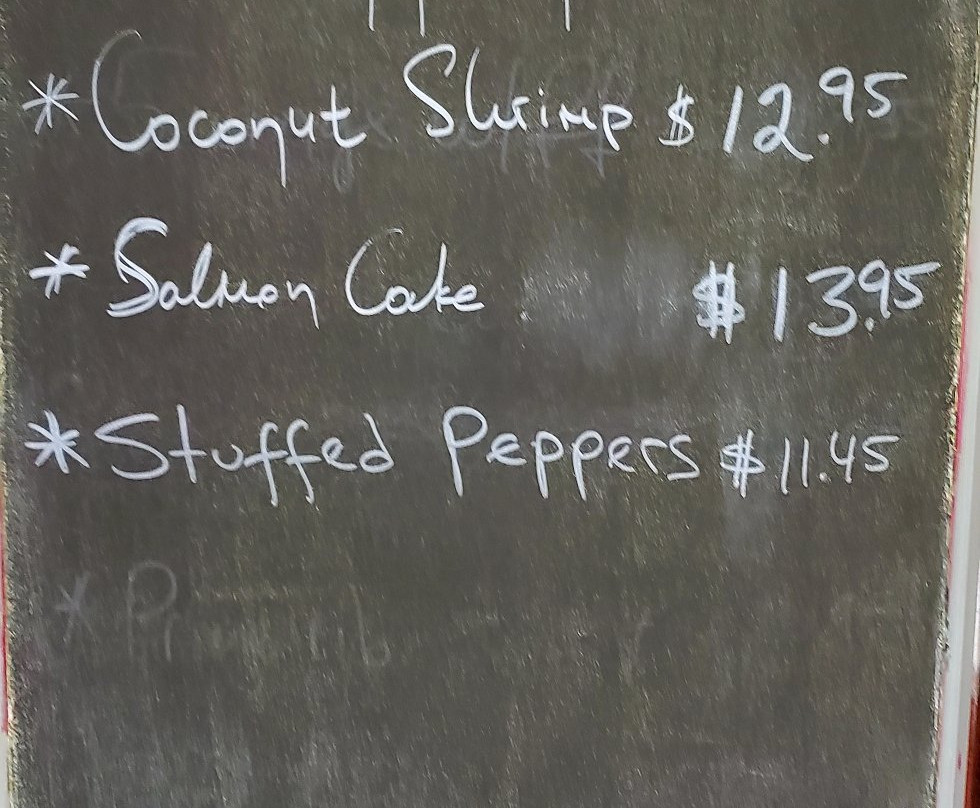 * Coconut Shrimp $ 12.95
* Salmon Cake $13.95
* Stuffed Peppers $11.45
*